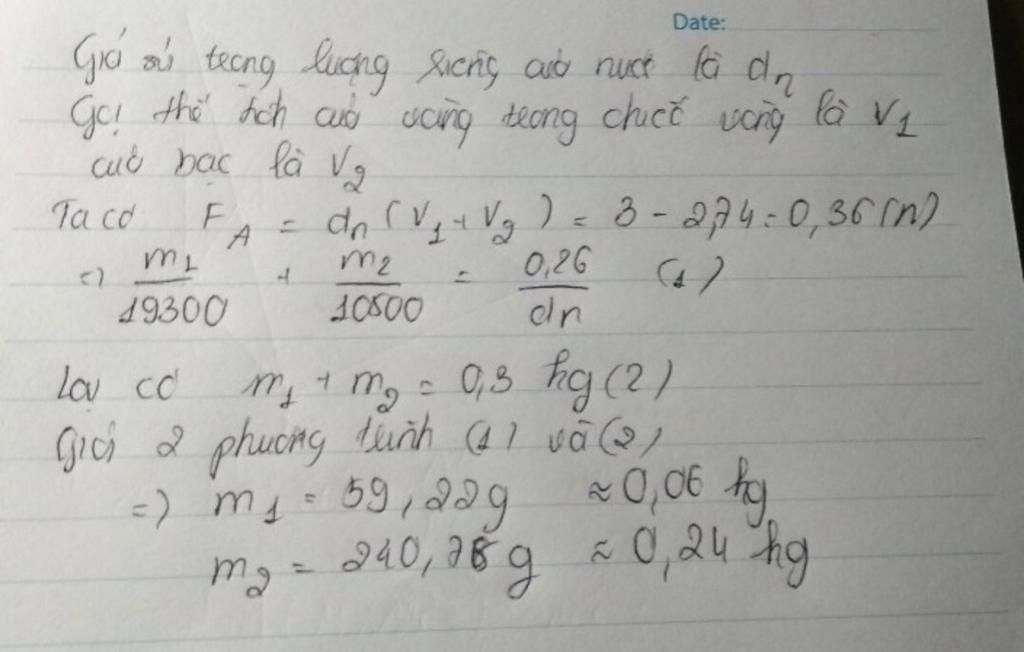 Date:
Giả sử trọng lượng riêng của nước là dn
Gọi thể tích của vàng trong chiếc vòng là V1
của bạc là V2
Ta có FA = dn(V1 + V2) = 3 - 2,74 = 0,36(N)
=) m1/19300 + m2/10500 = 0,26/dn (1)
Lại có m1 + m2 = 0,3 kg (2)
Giải 2 phương trình (1) và (2)
=) m1 = 59,22g ≈ 0,06 kg
m2 = 240,78g ≈ 0,24 kg